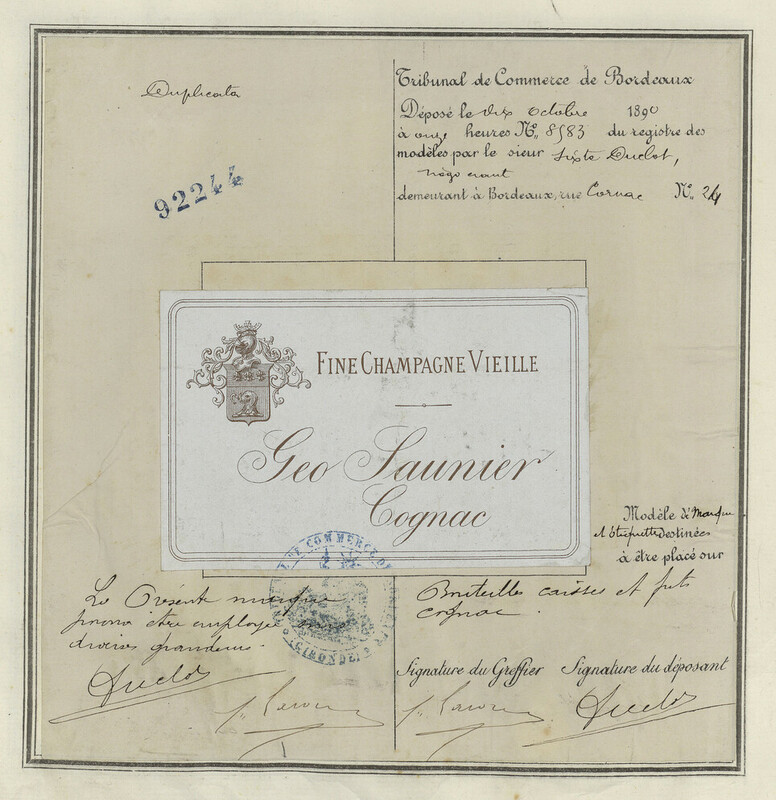 Duplicata
92244
Tribunal de Commerce de Bordeaux
Déposé le dix octobre 1890
à onze heures N°. 8583 du registre des
modèles par le sieur Sixte Duclot,
négociant
demeurant à Bordeaux, rue Cornac N°. 24
FINE CHAMPAGNE VIEILLE
Geo Saunier
Cognac
Modèle de marque
et étiquette destinées
à être placé sur
Bouteilles caisses et futs
cognac.
La Présente marque
pourra être employée
diverses grandeurs.
DE COMMERCE DE
GIRONDE
Signature du Greffier Signature du déposant
Duclot
Duclot